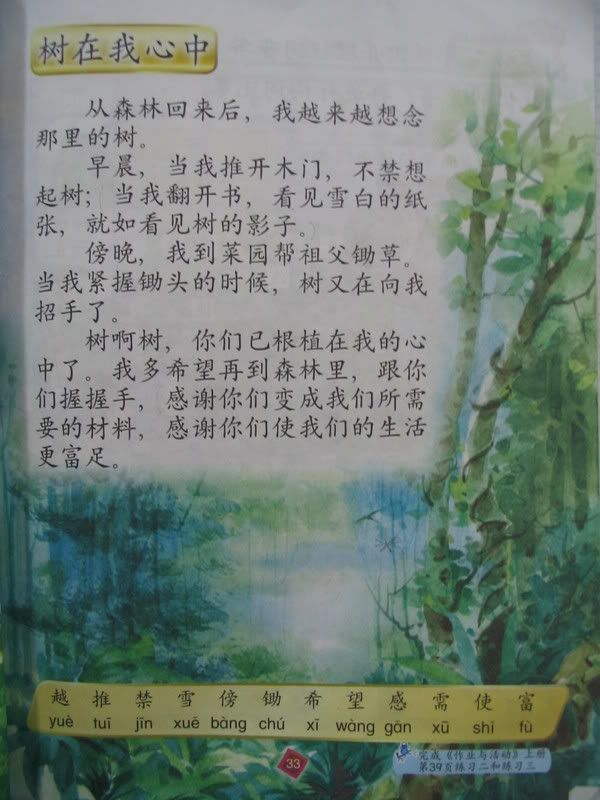 树在我心中
从森林回来后，我越来越想念
那里的树。
早晨，当我推开木门，不禁想
起树；当我翻开书，看见雪白的纸
张，就如看见树的影子。
傍晚，我到菜园帮祖父锄草。
当我紧握锄头的时候，树又在向我
招手了。
树啊树，你们已根植在我的心
中了。我多希望再到森林里，跟你
们握握手，感谢你们变成我们所需
要的材料，感谢你们使我们的生活
更富足。
越 推 禁 雪 傍 锄 希 望 感 需 使 富
yuè tuī jīn xuě bàng chú xī wàng gǎn xū shǐ fù
33
完成《作业与活动》上册
第39页练习二和练习三